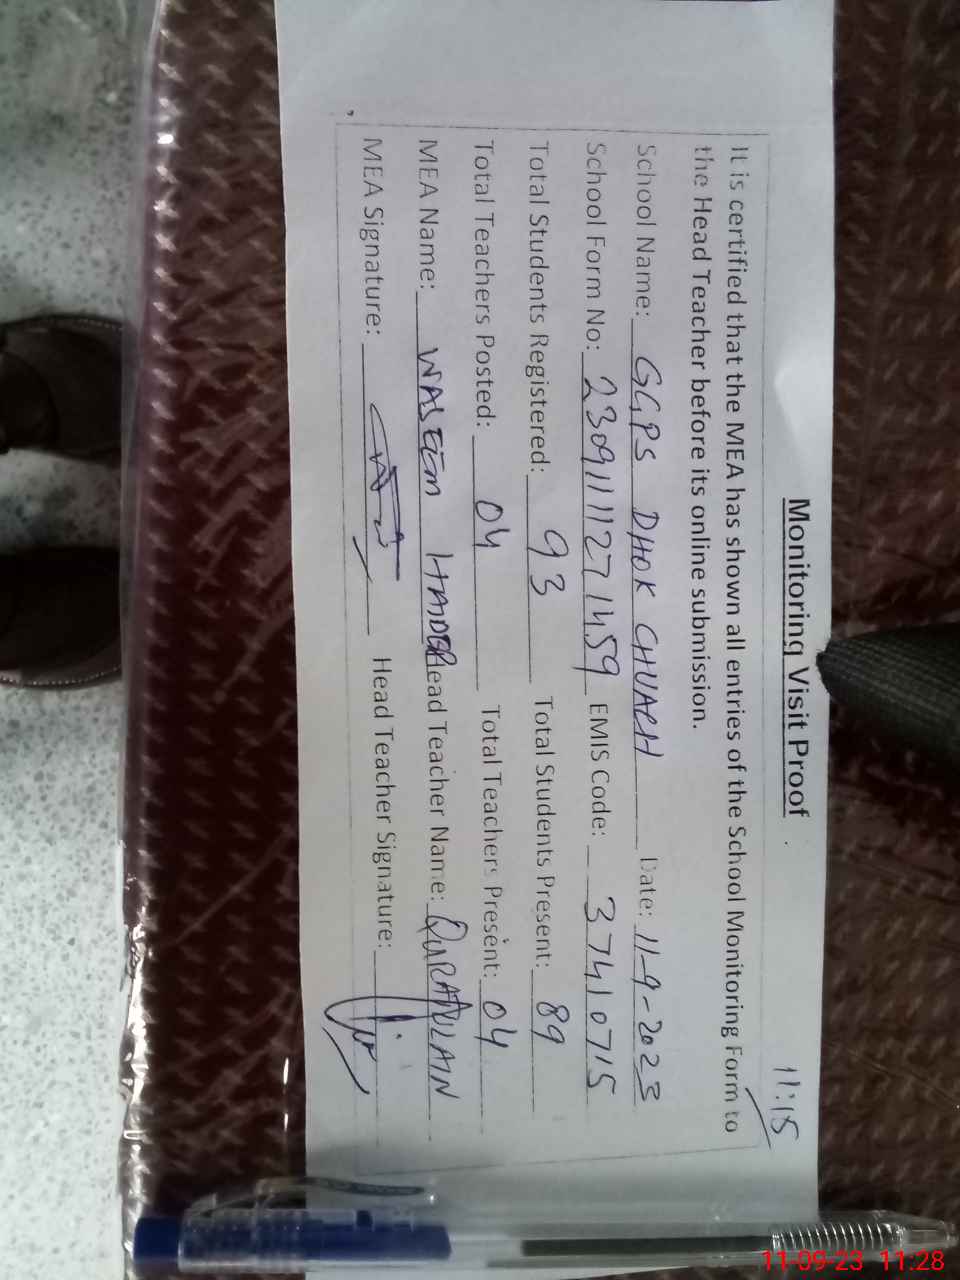 11:15
Monitoring Visit Proof
It is certified that the MEA has shown all entries of the School Monitoring Form to
the Head Teacher before its online submission.
School Name: GGPS DHOK CHUACH Date: 11-9-2023
School Form No: 23091111271459 EMIS Code: 37410715
Total Students Registered: 93 Total Students Present: 89
Total Teachers Posted: 04 Total Teachers Present: 04
MEA Name: WASEEM HAIDER Head Teacher Name: QURATULAIN
MEA Signature: Head Teacher Signature:
11-09-23 11:28